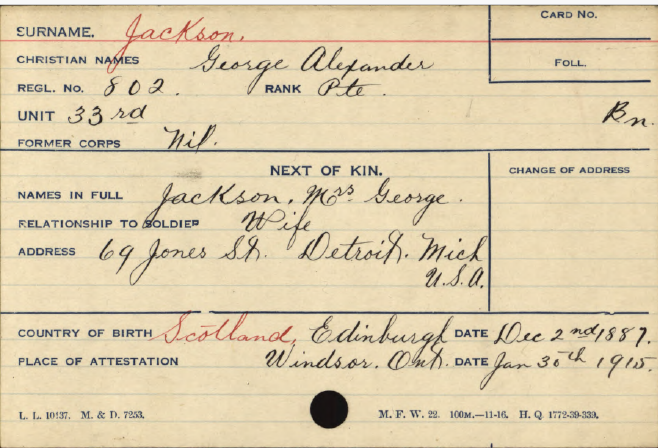 CARD NO.
SURNAME. Jackson.
CHRISTIAN NAMES George Alexander
FOLL.
REGL. No. 802. RANK Pte.
UNIT 33rd Bn.
FORMER CORPS Nil.
NEXT OF KIN. CHANGE OF ADDRESS
NAMES IN FULL Jackson, Mrs George.
RELATIONSHIP TO SOLDIER Wife
ADDRESS 69 Jones St. Detroit. Mich
U.S.A.
COUNTRY OF BIRTH Scotland, Edinburgh DATE Dec 2nd 1887.
PLACE OF ATTESTATION Windsor. Ont. DATE Jan 30th 1915.
L. L. 10137. M. & D. 7253. M. F. W. 22. 100M.—11-16. H. Q. 1772-39-339.